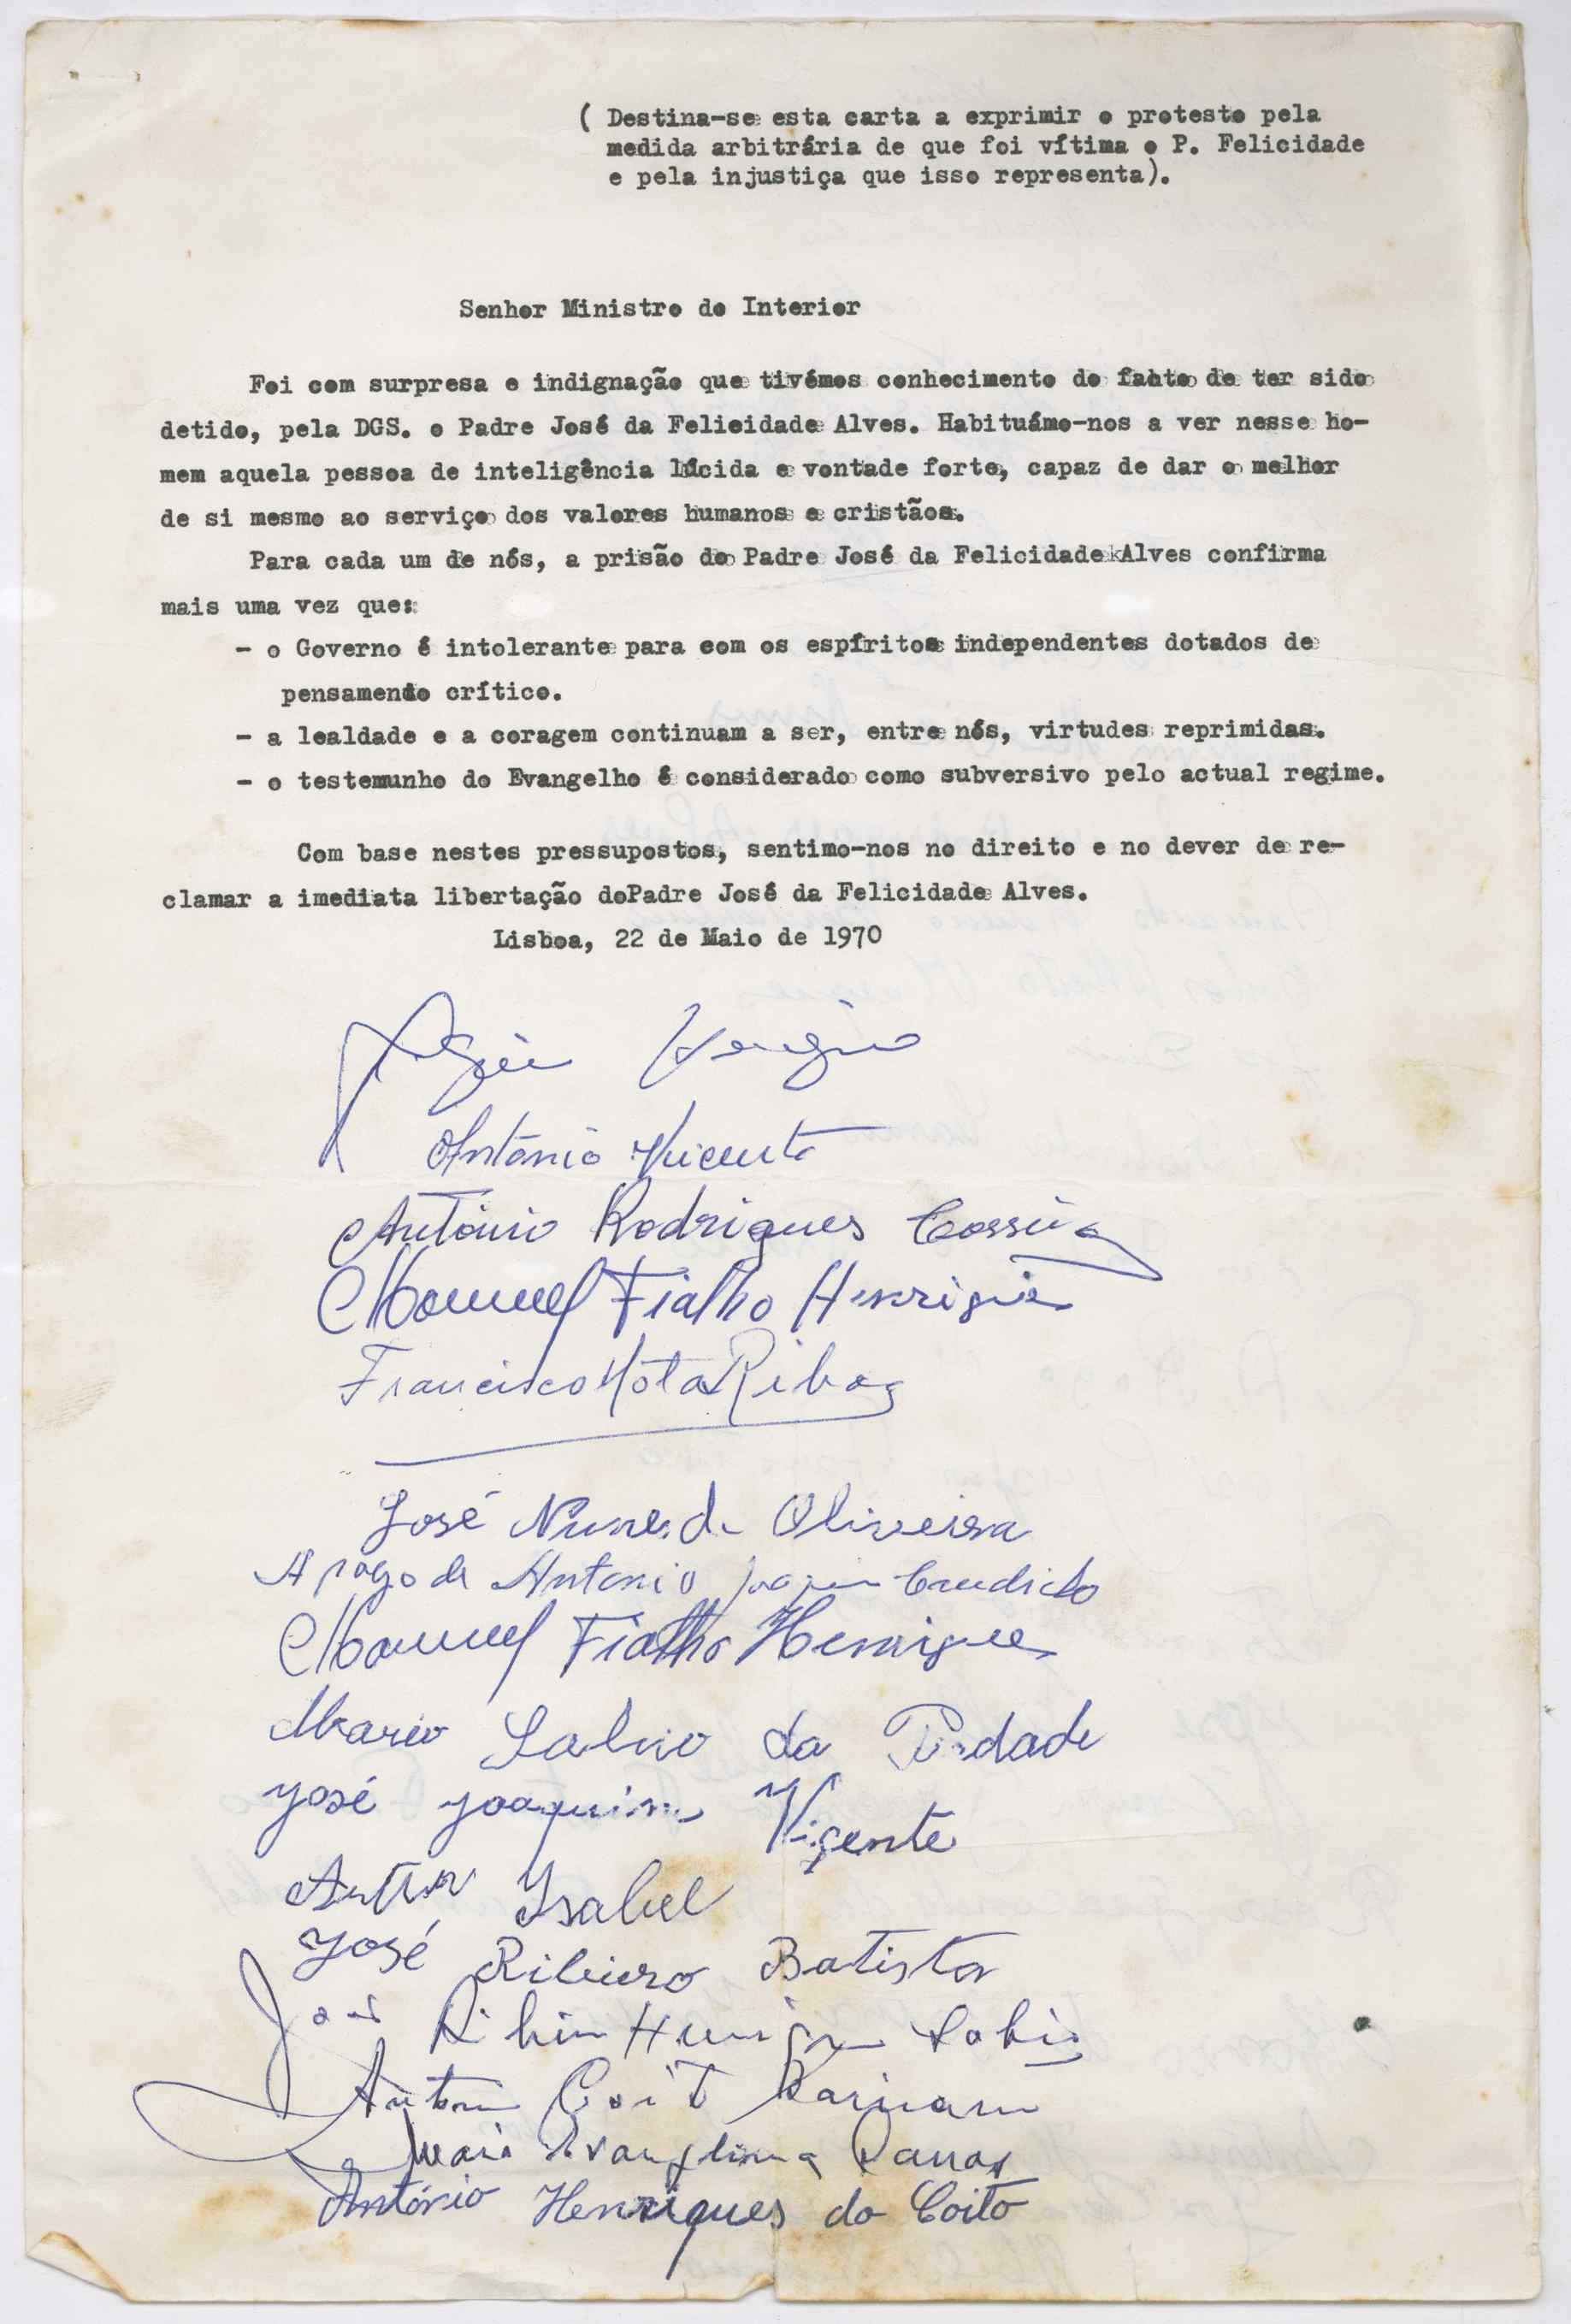 ( Destina-se esta carta a exprimir o protesto pela
medida arbitrária de que foi vítima o P. Felicidade
e pela injustiça que isso representa).
Senhor Ministro do Interior
Foi com surpresa e indignação que tivémos conhecimento do facto de ter sido
detido, pela DGS. o Padre José da Felicidade Alves. Habituámo-nos a ver nesse ho-
mem aquela pessoa de inteligência lúcida e vontade forte, capaz de dar o melhor
de si mesmo ao serviço dos valores humanos e cristãos.
Para cada um de nós, a prisão do Padre José da Felicidade Alves confirma
mais uma vez que:
- o Governo é intolerante para com os espíritos independentes dotados de
pensamento crítico.
- a lealdade e a coragem continuam a ser, entre nós, virtudes reprimidas.
- o testemunho do Evangelho é considerado como subversivo pelo actual regime.
Com base nestes pressupostos, sentimo-nos no direito e no dever de re-
clamar a imediata libertação doPadre José da Felicidade Alves.
Lisboa, 22 de Maio de 1970
António Vicente
António Rodrigues
Manuel Fialho Henriques
Francisco Mota Ribas
José Nunes de Oliveira
A rogo de Antonio Joaquim
Manuel Fialho Henriques
Mario da
José Joaquim Viçente
Artur Isabel
José Ribiero Batista
Maria Evangelina Ramos
António Henriques do Coito